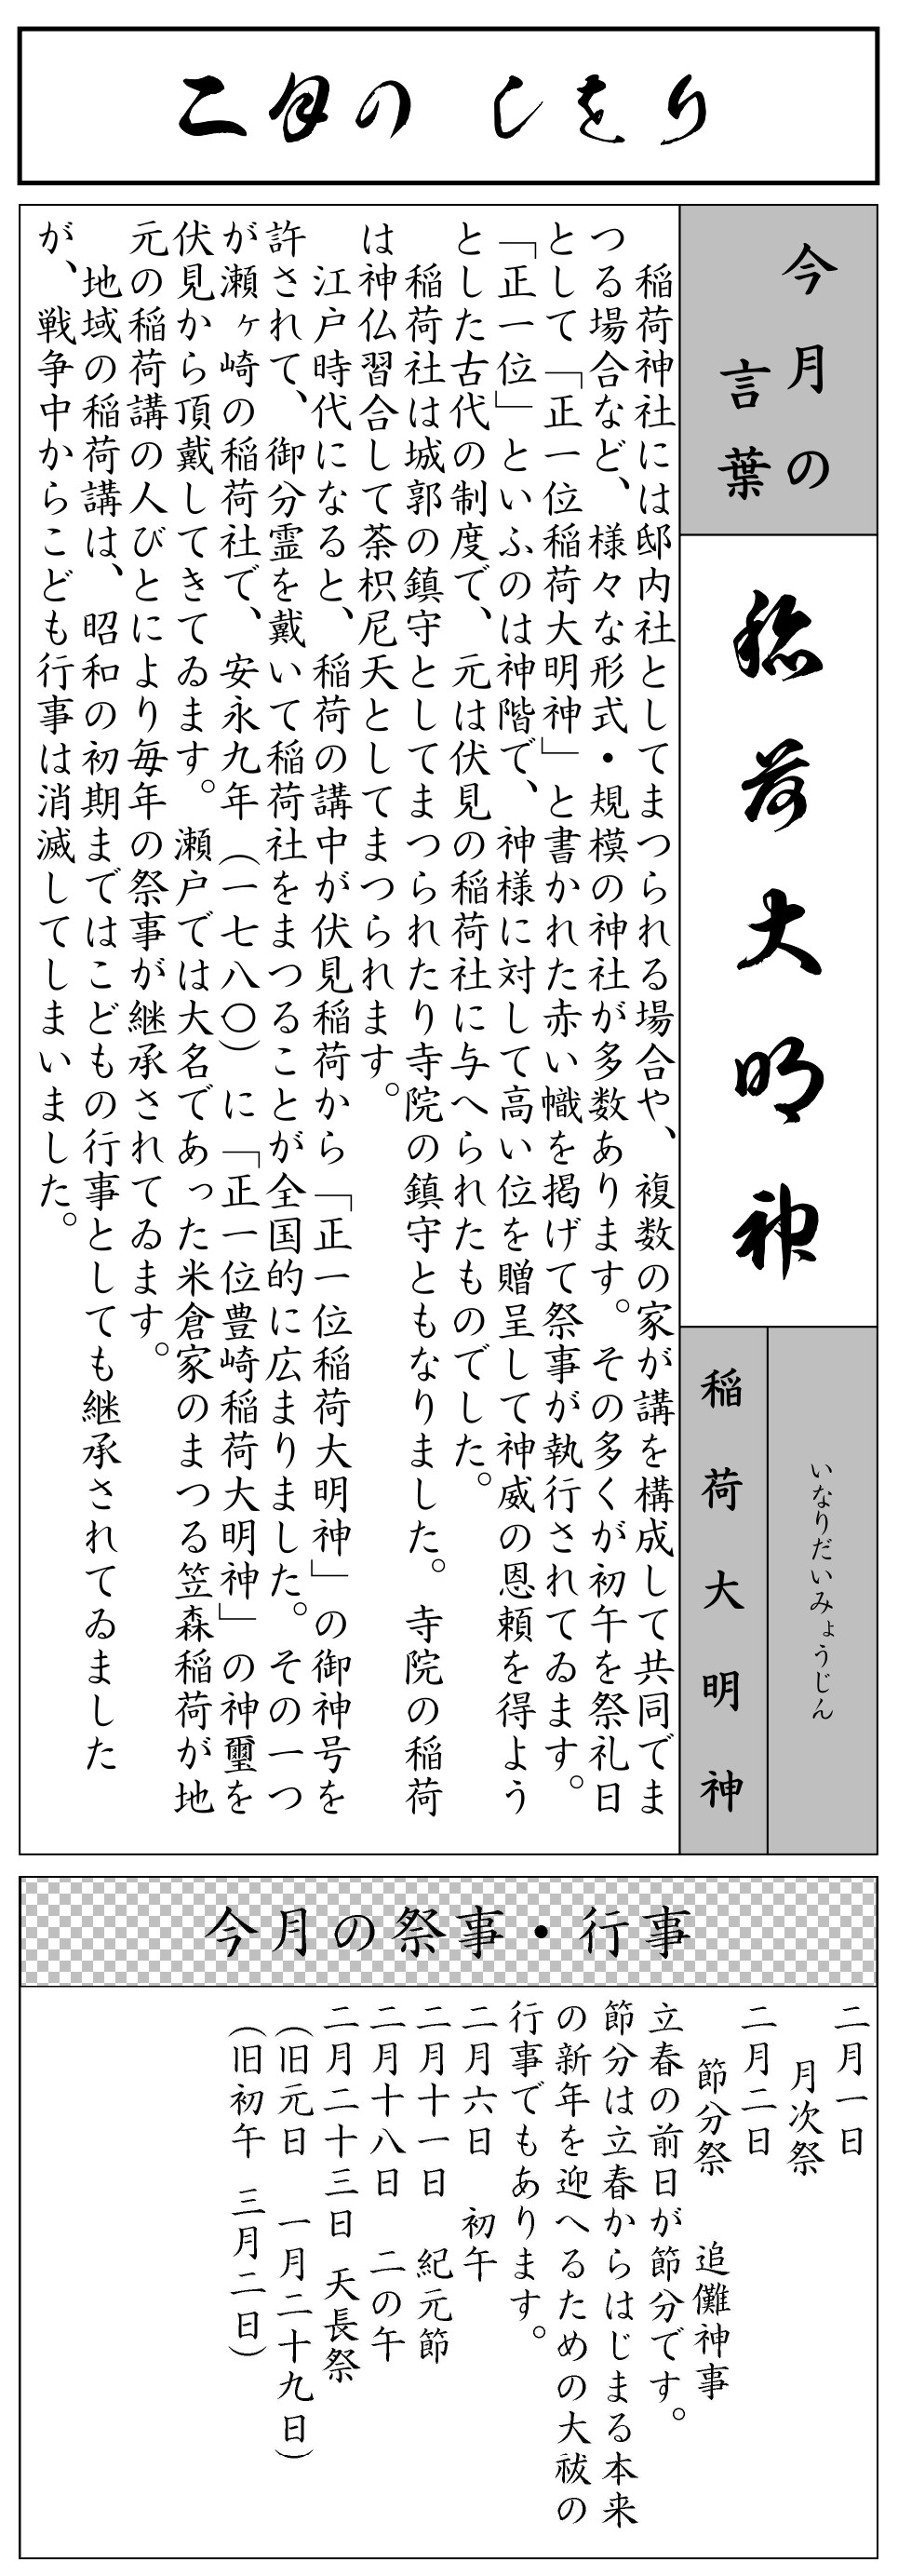 二月の しをり
今月の
言葉
稲荷大明神
いなりだいみょうじん
稲荷大明神
稲荷神社には邸内社としてまつられる場合や、複数の家が講を構成して共同でま
つる場合など、様々な形式・規模の神社が多数あります。その多くが初午を祭礼日
として「正一位稲荷大明神」と書かれた赤い幟を掲げて祭事が執行されてゐます。
「正一位」といふのは神階で、神様に対して高い位を贈呈して神威の恩頼を得よう
とした古代の制度で、元は伏見の稲荷社に与へられたものでした。
稲荷社は城郭の鎮守としてまつられたり寺院の鎮守ともなりました。寺院の稲荷
は神仏習合して荼枳尼天としてまつられます。
江戸時代になると、稲荷の講中が伏見稲荷から「正一位稲荷大明神」の御神号を
許されて、御分霊を戴いて稲荷社をまつることが全国的に広まりました。その一つ
が瀬ヶ崎の稲荷社で、安永九年（一七八〇）に「正一位豊崎稲荷大明神」の神璽を
伏見から頂戴してきてゐます。瀬戸では大名であった米倉家のまつる笠森稲荷が地
元の稲荷講の人びとにより毎年の祭事が継承されてゐます。
地域の稲荷講は、昭和の初期まではこどもの行事としても継承されてゐました
が、戦争中からこども行事は消滅してしまいました。
今月の祭事・行事
二月一日
月次祭
二月二日
節分祭 追儺神事
立春の前日が節分です。
節分は立春からはじまる本来
の新年を迎へるための大祓の
行事でもあります。
二月六日 初午
二月十一日 紀元節
二月十八日 二の午
二月二十三日 天長祭
（旧元日 一月二十九日）
（旧初午 三月二日）